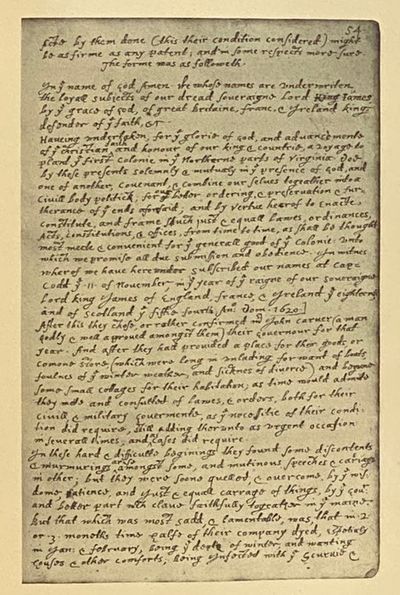 54
acte by them done (this their condition considered) might
be as firme as any patent; and in some respects more sure.
The forme was as followeth.
In yͤ name of god Amen. We whose names are underwriten,
the loyall subjects of our dread soveraigne Lord King James
by yͤ grace of god, of great Britaine, franc, & Ireland king,
defendor of yͤ faith, &c.
Haveing undertaken, for yͤ glorie of god, and advancemente
of yͤ christian faith and honour of our king & countrie, a voyage to
plant yͤ first colonie in yͤ Northerne parts of Virginia. Doe
by these presents solemnly & mutualy in yͤ presence of god, and
one of another, covenant, & combine our selves togeather into a
civill body politick; for yͤ better ordering, & preservation & fur-
therance of yͤ ends aforesaid; and by vertue hearof to enacte,
constitute, and frame shuch just & equall lawes, ordinances,
Acts, constitutions, & offices, from time to time, as shall be thought
most meete & convenient for yͤ generall good of yͤ colonie: unto
which we promise all due submission and obedience. In witnes
wherof we have hereunder subscribed our names at cap=
codd yͤ .11. of November, in yͤ year of yͤ raigne of our soveraigne
Lord king James of England, france, & Ireland yͤ eighteenth
and of Scotland yͤ fiftie fourth. Anᵒ: Dom. 1620.]
After this they chose, or rather confirmed mʳ John carver (a man
godly & well approved amongst them) their governour for that
year. And after they had provided a place for their goods, or
comone store, (which were long in unlading for want of boats,
foulnes of yͤ winter weather, and sicknes of diverce) and begune
some small cottages for their habitation; as time would admitte
they mette and consulted of lawes, & orders, both for their
civill & military govermente, as yͤ necessitie of their condi-
tion did require, still adding therunto as urgent occasion
in severall times, and as cases did require.
In these hard & difficulte beginings they found some discontents
& murmurings arise amongst some, and mutinous speeches & cariags
in other; but they were soone quelled, & overcome, by yͤ wis-
dome, patience, and just & equall carrage of things, by yͤ Govʳ
and better part wᶜʰ clave faithfully togeather in yͤ maine.
But that which was most sadd, & lamentable, was, that in .2.
or .3. moneths time halfe of their company dyed, espetialy
in Jan: & february, being yͤ depth of winter, and wanting
houses & other comforts; being infected with yͤ Scurvie &